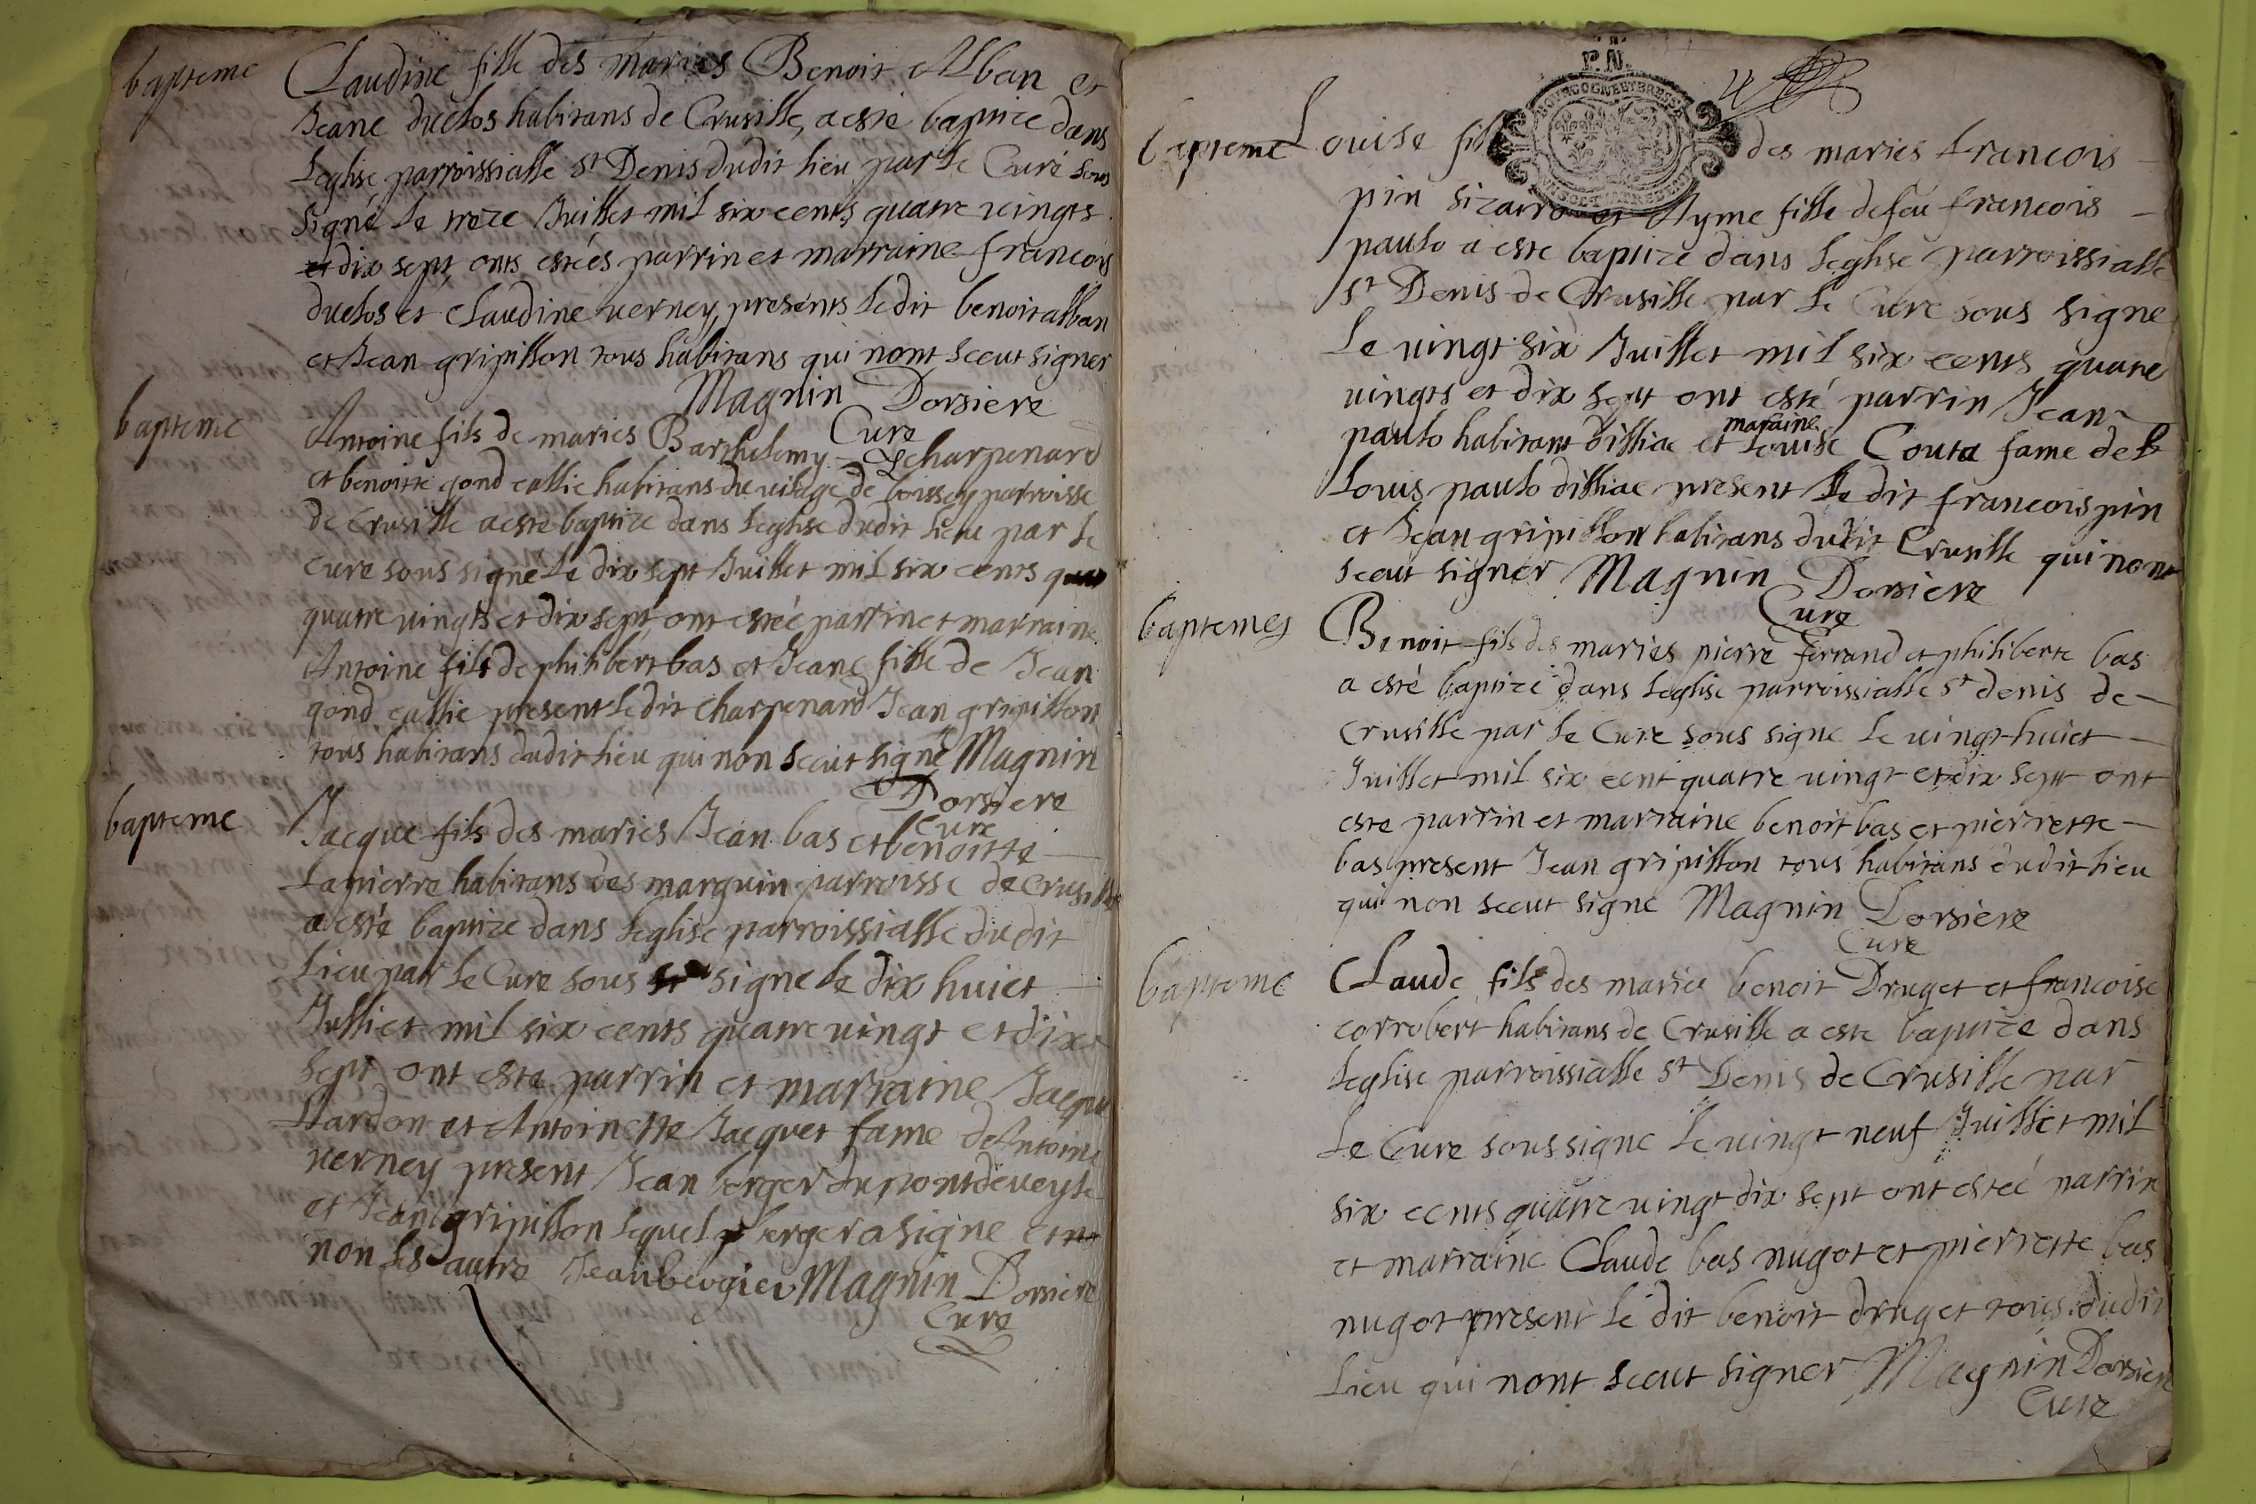 bapteme
Claudine fille des maries Benoit Alban et
Jeane duclos habitans de Crusille, a esté baptize dans
Leglise parroissialle St Denis dudit lieu par le Curé sous
signé Le treze Juillet mil six cents quatre vingts
et dix sept, onts estéés parrin et marraine francois
duclos et Claudine verney, presents ledit benoit alban
et Jean gripillon tous habitans qui nont sceut signer
Magnin Dorsiere
Cure
bapteme
Antoine fils de maries Barthelemy charpenard
et benoitte gond callie habitans du vilage de boissey parroisse
de Crusille a esté baptize dans Leglise dudit lieu par le
cure sous signe Le dix sept Juillet mil six cents
quatre vingts et dix sept, ont estéé parrin et marraine
Antoine fils de philibert bas et Jeane fille de Jean
gond callie present ledit charpenard Jean gripillon
tous habitans dudit lieu qui non sceut signé Magnin
Dorsiere
Cure
bapteme
Jacque fils des maries Jean bas et benoitte
Lapierre habitans des marguin parroisse de Crusille
a esté baptize dans Leglise parroissialle dudit
Lieu par le Cure sous signe le dix huict
Julliet mil six cents quatre vingt et dix
sept ont esté parrin et marraine Jacque
Dardon et Antoinette Jacquet fame de Antoine
verney present Jean berger du pont de veyle
et Jean gripillon lequel berger a signe et
non les autre Jean bergier Magnin Dorsiere
Cure
P.N.
BOURGOGNE ET BRESSE
bapteme Louise fille des maries francois
pin sizarro et Ayme fille de feu francois
pauto a esté baptize dans Leglise parroissialle
St Denis de Crusille par le Cure sous signe
Le vingt six Juillet mil six cents quatre
vingts et dix sept ont esté parrin Jean
maraine
pauto habitant dilliac et Louise Couta fame de
Louis pauto dilliac present Le dit francois pin
et Jean gripillon habitans dudit Crusille qui nont
sceut signer Magnin Dorsiere
Cure
baptemes
Benoit fils des maries pierre ferrand et philiberte bas
a esté baptize dans Leglise parroissialle St denis de
Crusille par le Cure sous signe Le vingt huict
Juillet mil six cent quatre vingt et dix sept ont
este parrin et marraine benoit bas et pierrette
bas present Jean gripillon tous habitans dudit lieu
qui non sceut signe Magnin Dorsiere
Cure
bapteme
Claude fils des maries benoit Druget et francoise
corrobert habitans de Crusille a este baptize dans
Leglise parroissialle St Denis de Crusille par
Le Cure sous signe Le vingt neuf Juilliet mil
six cents quatre vingt dix sept ont estéé parrin
et marraine Claude bas nugot et pierrette bas
nugot present le dit benoit druget tous dudit
Lieu qui nont sceut signer Magnin Dorsiere
Cure